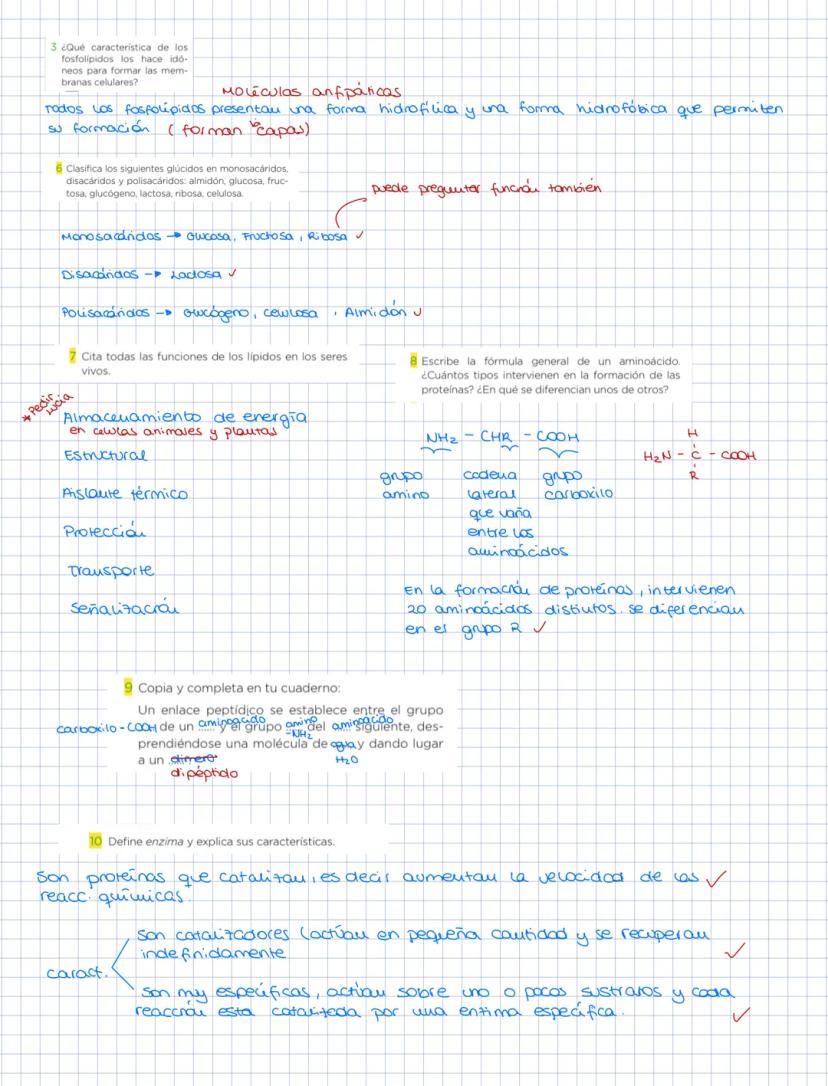 3 ¿Qué característica de los
fosfolípidos los hace idó-
neos para formar las mem-
branas celulares?
Moléculas anfipáticas
Todos los fosfolípidos presentan una forma hidrofílica y una forma hidrofóbica que permiten
su formación (forman bicapas)
6 Clasifica los siguientes glúcidos en monosacáridos,
disacáridos y polisacáridos: almidón, glucosa, fruc-
tosa, glucógeno, lactosa, ribosa, celulosa.
puede preguntar función también
Monosacáridos → Glucosa, Fructosa, Ribosa ✓
Disacáridos → Lactosa ✓
Polisacáridos → Glucógeno, celulosa, Almidón ✓
7 Cita todas las funciones de los lípidos en los seres
vivos.
* Pedir Lucía
Almacenamiento de energía
en celulas animales y plantas
Estructural
Aislante térmico
Protección
Transporte
Señalización
8 Escribe la fórmula general de un aminoácido.
¿Cuántos tipos intervienen en la formación de las
proteínas? ¿En qué se diferencian unos de otros?
NH2 - CHR - COOH
grupo cadena grupo
amino lateral carboxilo
que varía
entre los
aminoácidos
H
H2N - C - COOH
R
En la formación de proteínas, intervienen
20 aminoácidos distintos. se diferencian
en el grupo R ✓
9 Copia y completa en tu cuaderno:
Un enlace peptídico se establece entre el grupo
carboxilo -COOH de un aminoacido y el grupo amino -NH2 del aminoácido siguiente, des-
prendiéndose una molécula de agua H2O y dando lugar
a un dimero
dipéptido
10 Define enzima y explica sus características.
Son proteínas que catalizan, es decir aumentan la velocidad de las ✓
reacc. químicas.
caract.
Son catalizadores (actúan en pequeña cantidad y se recuperan
indefinidamente ✓
Son muy específicas, actúan sobre uno o pocos sustratos y cada
reacción esta catalizada por una enzima específica. ✓